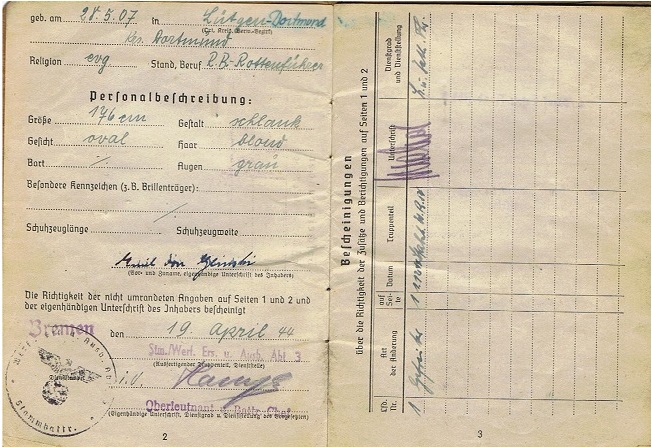 geb. am 28.5.07 in Lütgen-Dortmund
(Ort, Kreis, Verw.-Bezirk)
Krs. Dortmund
Religion evg Stand, Beruf R.B.-Rottenführer
Personalbeschreibung:
Größe 176 cm Gestalt schlank
Gesicht oval Haar blond
Bart / Augen grau
Besondere Kennzeichen (z.B. Brillenträger):
/
Schuhzeuglänge Schuhzeugweite
Emil
(Vor- und Zuname, eigenhändige Unterschrift des Inhabers)
Die Richtigkeit der nicht umrandeten Angaben auf Seiten 1 und 2 und
der eigenhändigen Unterschrift des Inhabers bescheinigt
Bremen den 19. April 44
Stm./Werf. Ers. u. Ausb. Abt 3
(Ausfertigender Truppenteil, Dienststelle)
Dienststempel
i.V.
Oberleutnant u. Battr.-Chef
(Eigenhändige Unterschrift, Dienstgrad u. Dienststellung des Vorgesetzten)
Stammbattr.
2
Bescheinigungen
über die Richtigkeit der Zusätze und Berichtigungen auf Seiten 1 und 2
Lfd. Nr. Art der Änderung auf Seite Datum Truppenteil Unterschrift Dienstgrad und Dienststellung
1 Gefreiter 1
3